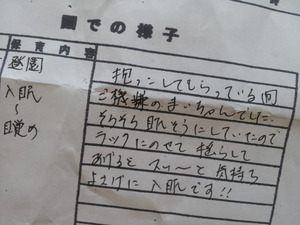 園での様子
保育内容
登園
抱っこしてもらっている間
ご機嫌のまいちゃんでした。
入眠
そろそろ眠そうにしていたので
〜
ラックにのせて揺らして
目覚め
あげると スーと気持ち
よさげに入眠です!!